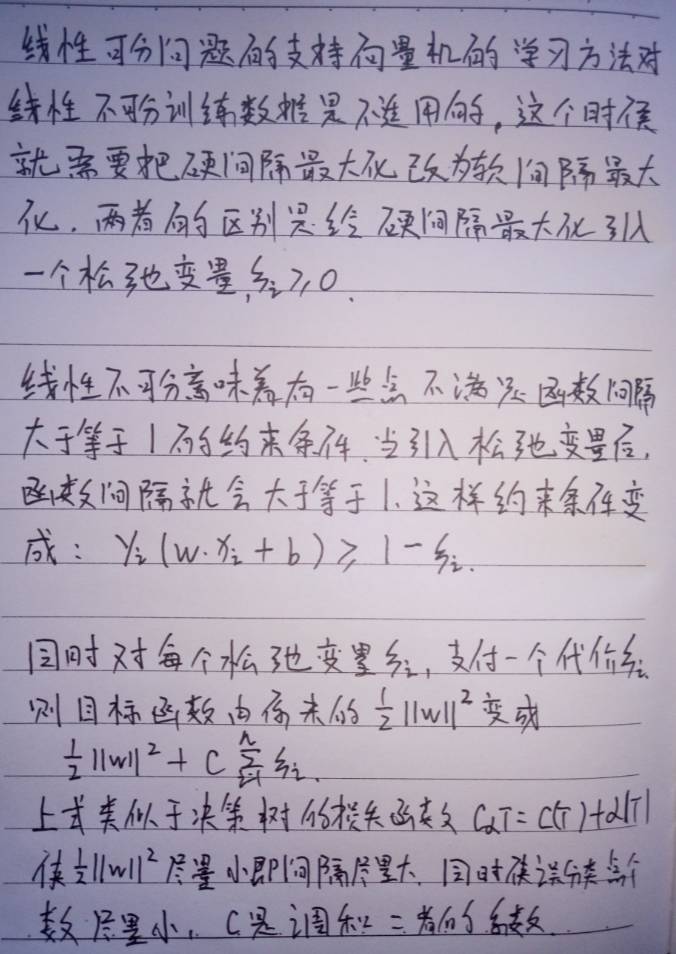 线性可分问题的支持向量机的学习方法对
线性不可分训练数据是不适用的，这个时候
就需要把硬间隔最大化改为软间隔最大
化．两者的区别是给硬间隔最大化引入
一个松弛变量，ξi≥0．
线性不可分意味着有一些点不满足函数间隔
大于等于1的约束条件．当引入松弛变量后，
函数间隔就会大于等于1．这样约束条件变
成：yi(w·xi+b)≥1-ξi．
同时对每个松弛变量ξi，支付一个代价ξi．
则目标函数由原来的½||w||²变成
½||w||² + C Σ ξi．
上式类似于决策树的损失函数 CαT=C(T)+α|T|
使½||w||²尽量小即间隔尽量大．同时使误分类点个
数尽量小，C是调和二者的系数．